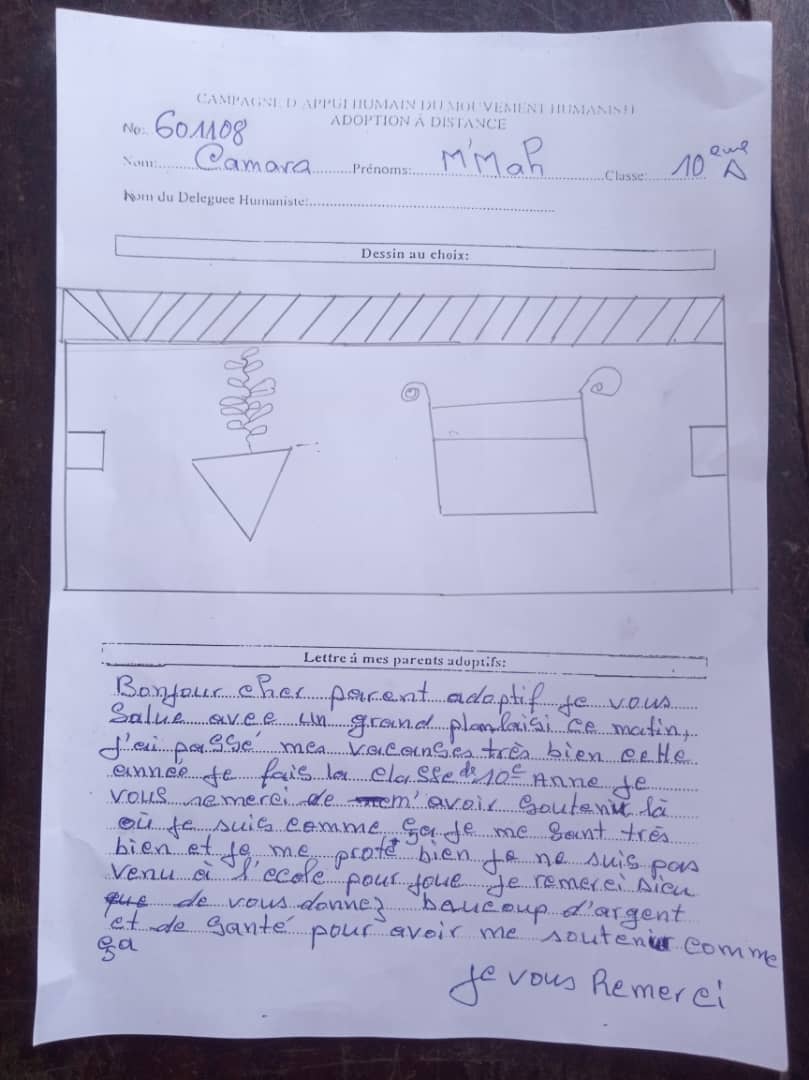 CAMPAGNE D'APPUI HUMAIN DU MOUVEMENT HUMANISTE
ADOPTION À DISTANCE
No: 601108
Nom: Camara Prénoms: M'Mah Classe: 10eme A
Nom du Deleguee Humaniste:
Dessin au choix:
Lettre á mes parents adoptifs:
Bonjour cher parent adoptif je vous
Salue avec un grand planlaisi ce matin,
J'ai passé mes vacanses très bien cette
année je fais la classe de 10e Anne je
vous remerci de m'avoir soutenu là
où je suis comme ça je me sant très
bien et je me prote bien je ne suis pas
venu à l'ecole pour joue je remerci Dieu
que de vous donnez beaucoup d'argent
et de santé pour avoir me soutenir comme
ça
Je vous Remerci